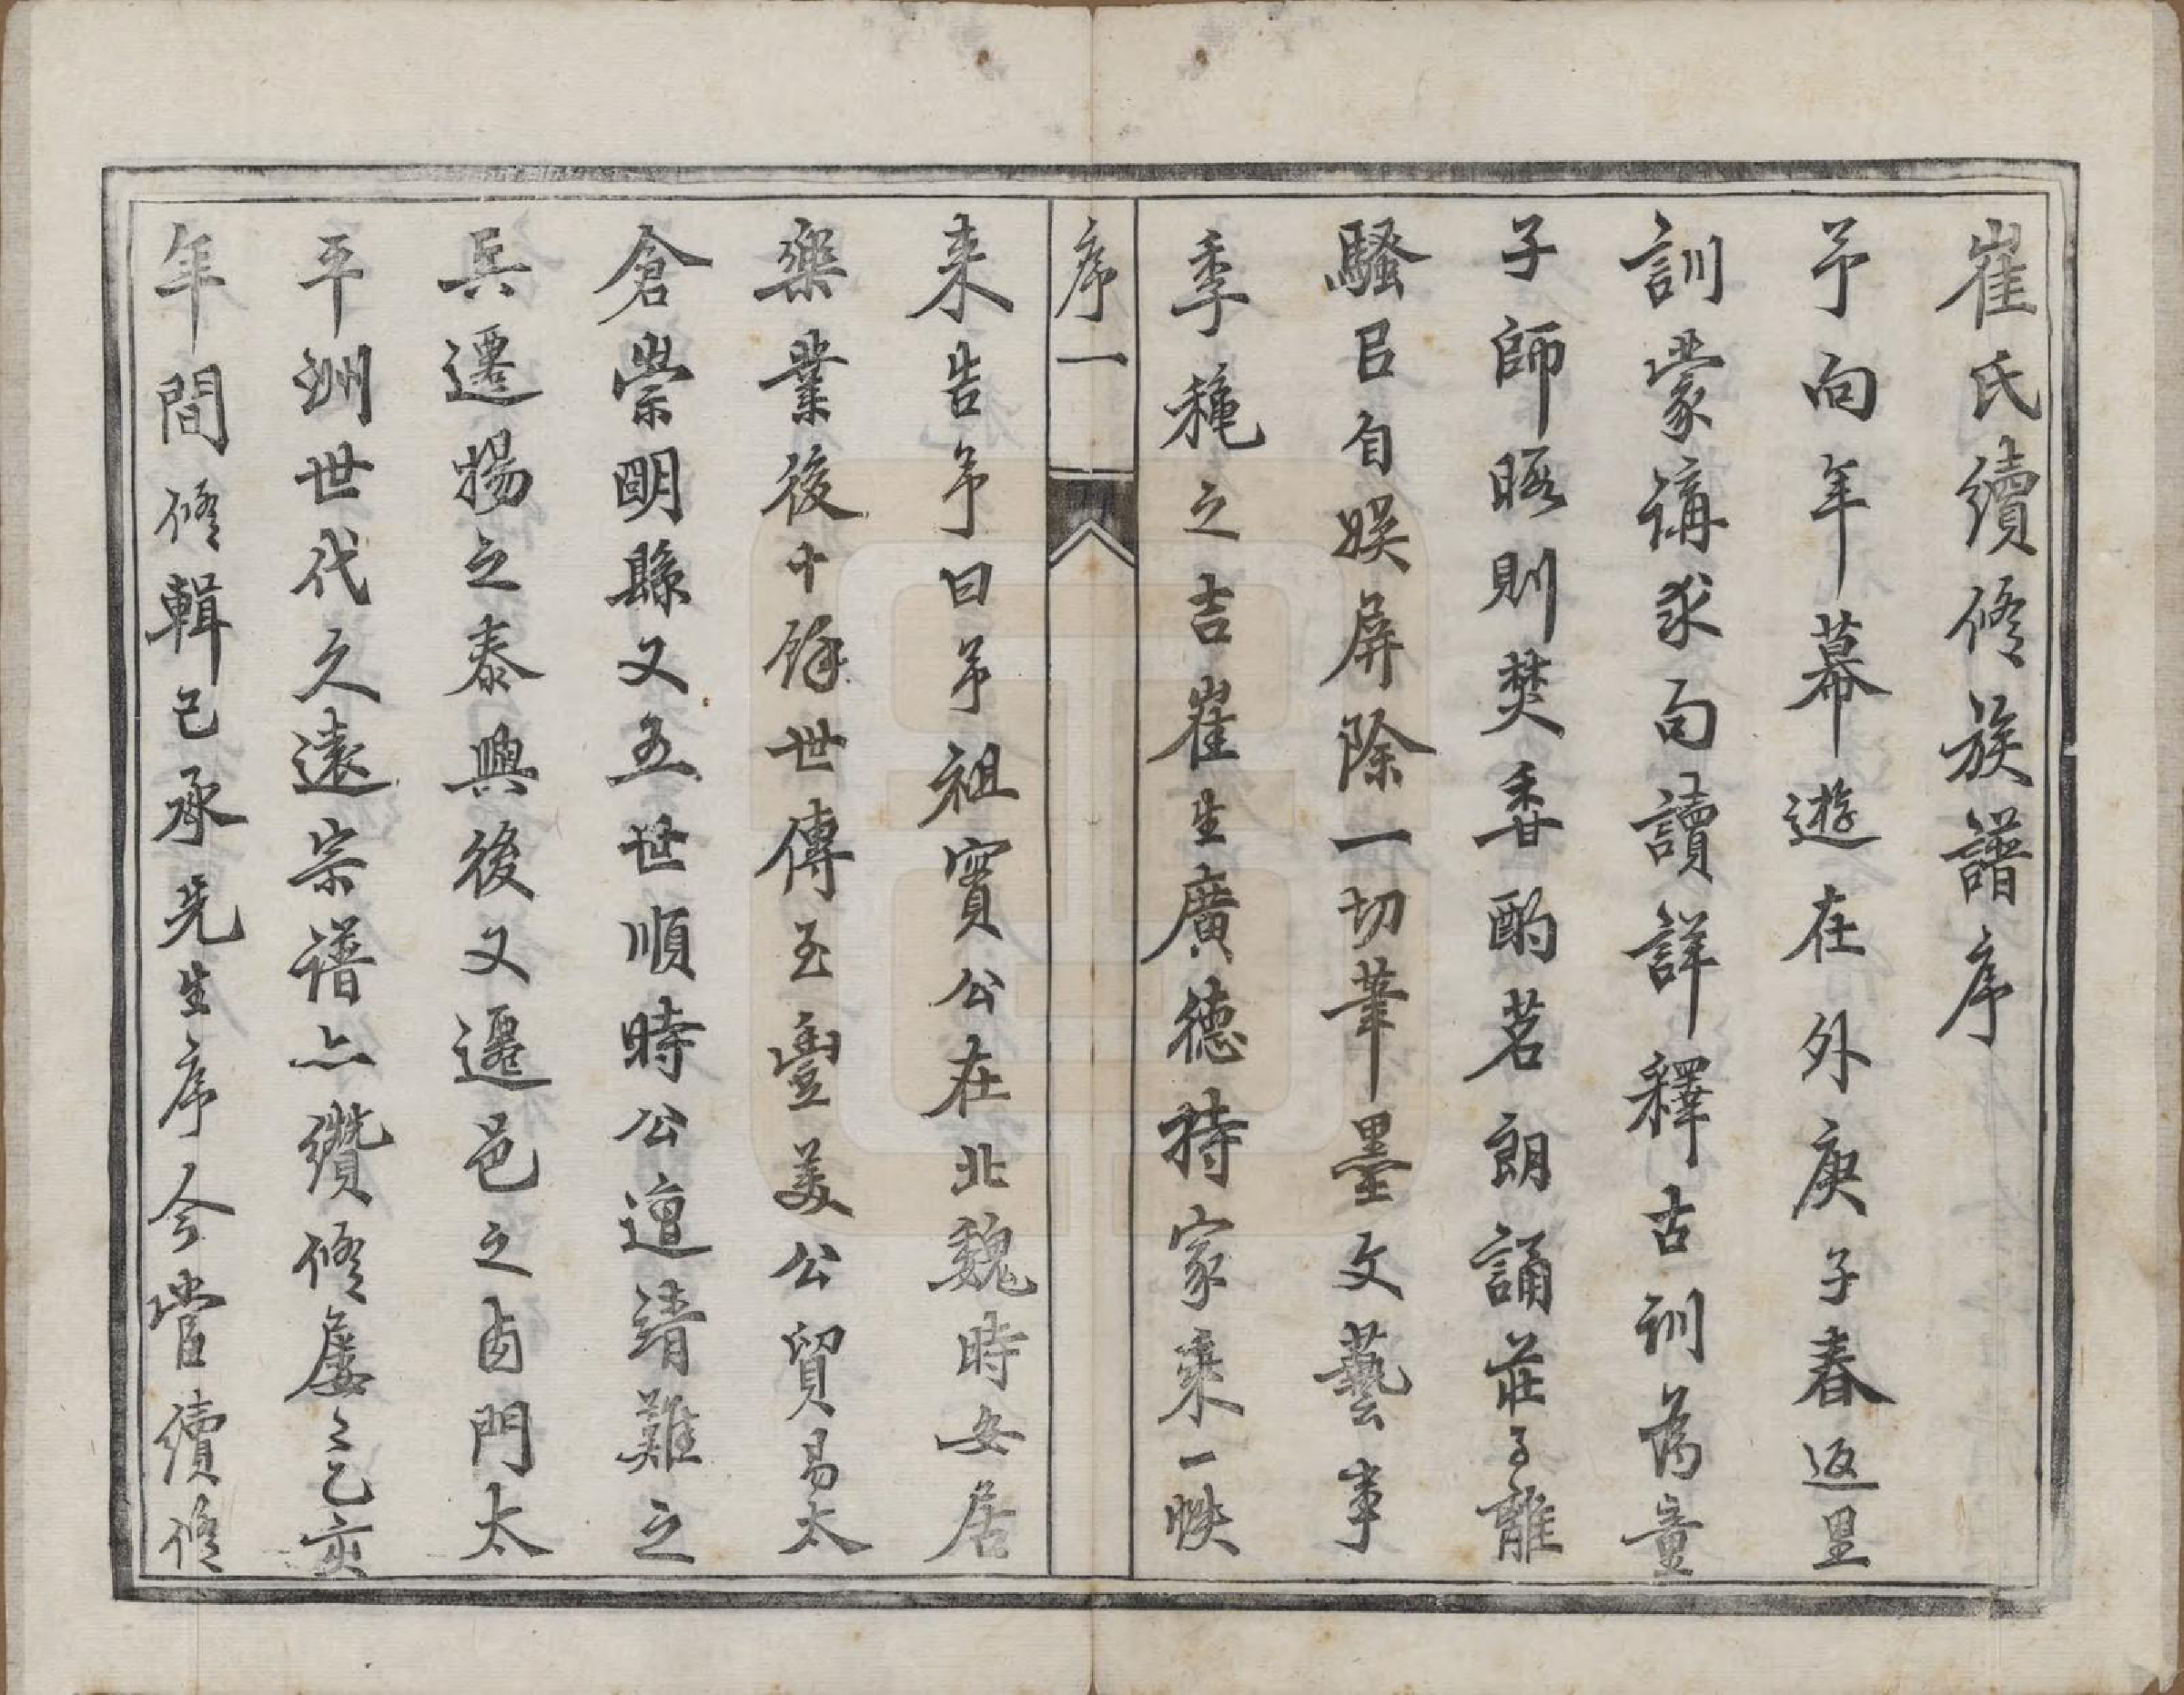 崔氏續修族譜序
予向年幕遊在外庚子春返里
訓蒙講求句讀詳釋古訓為童
子師暇則焚香酌茗朗誦莊子離
騷㠯自娱屏除一切筆墨文藝事
季穐之吉崔生廣德持家乗一帙
序一
来告予曰予祖實公在北魏時安居
樂業後十餘世傳至豐美公貿易太
倉崇明縣又五世順時公遭靖難之
兵遷揚之泰興後又遷邑之卤門太
平洲世代久遠宗譜亦纘修屡〻乙亥
年間修輯已承先生序今當續修